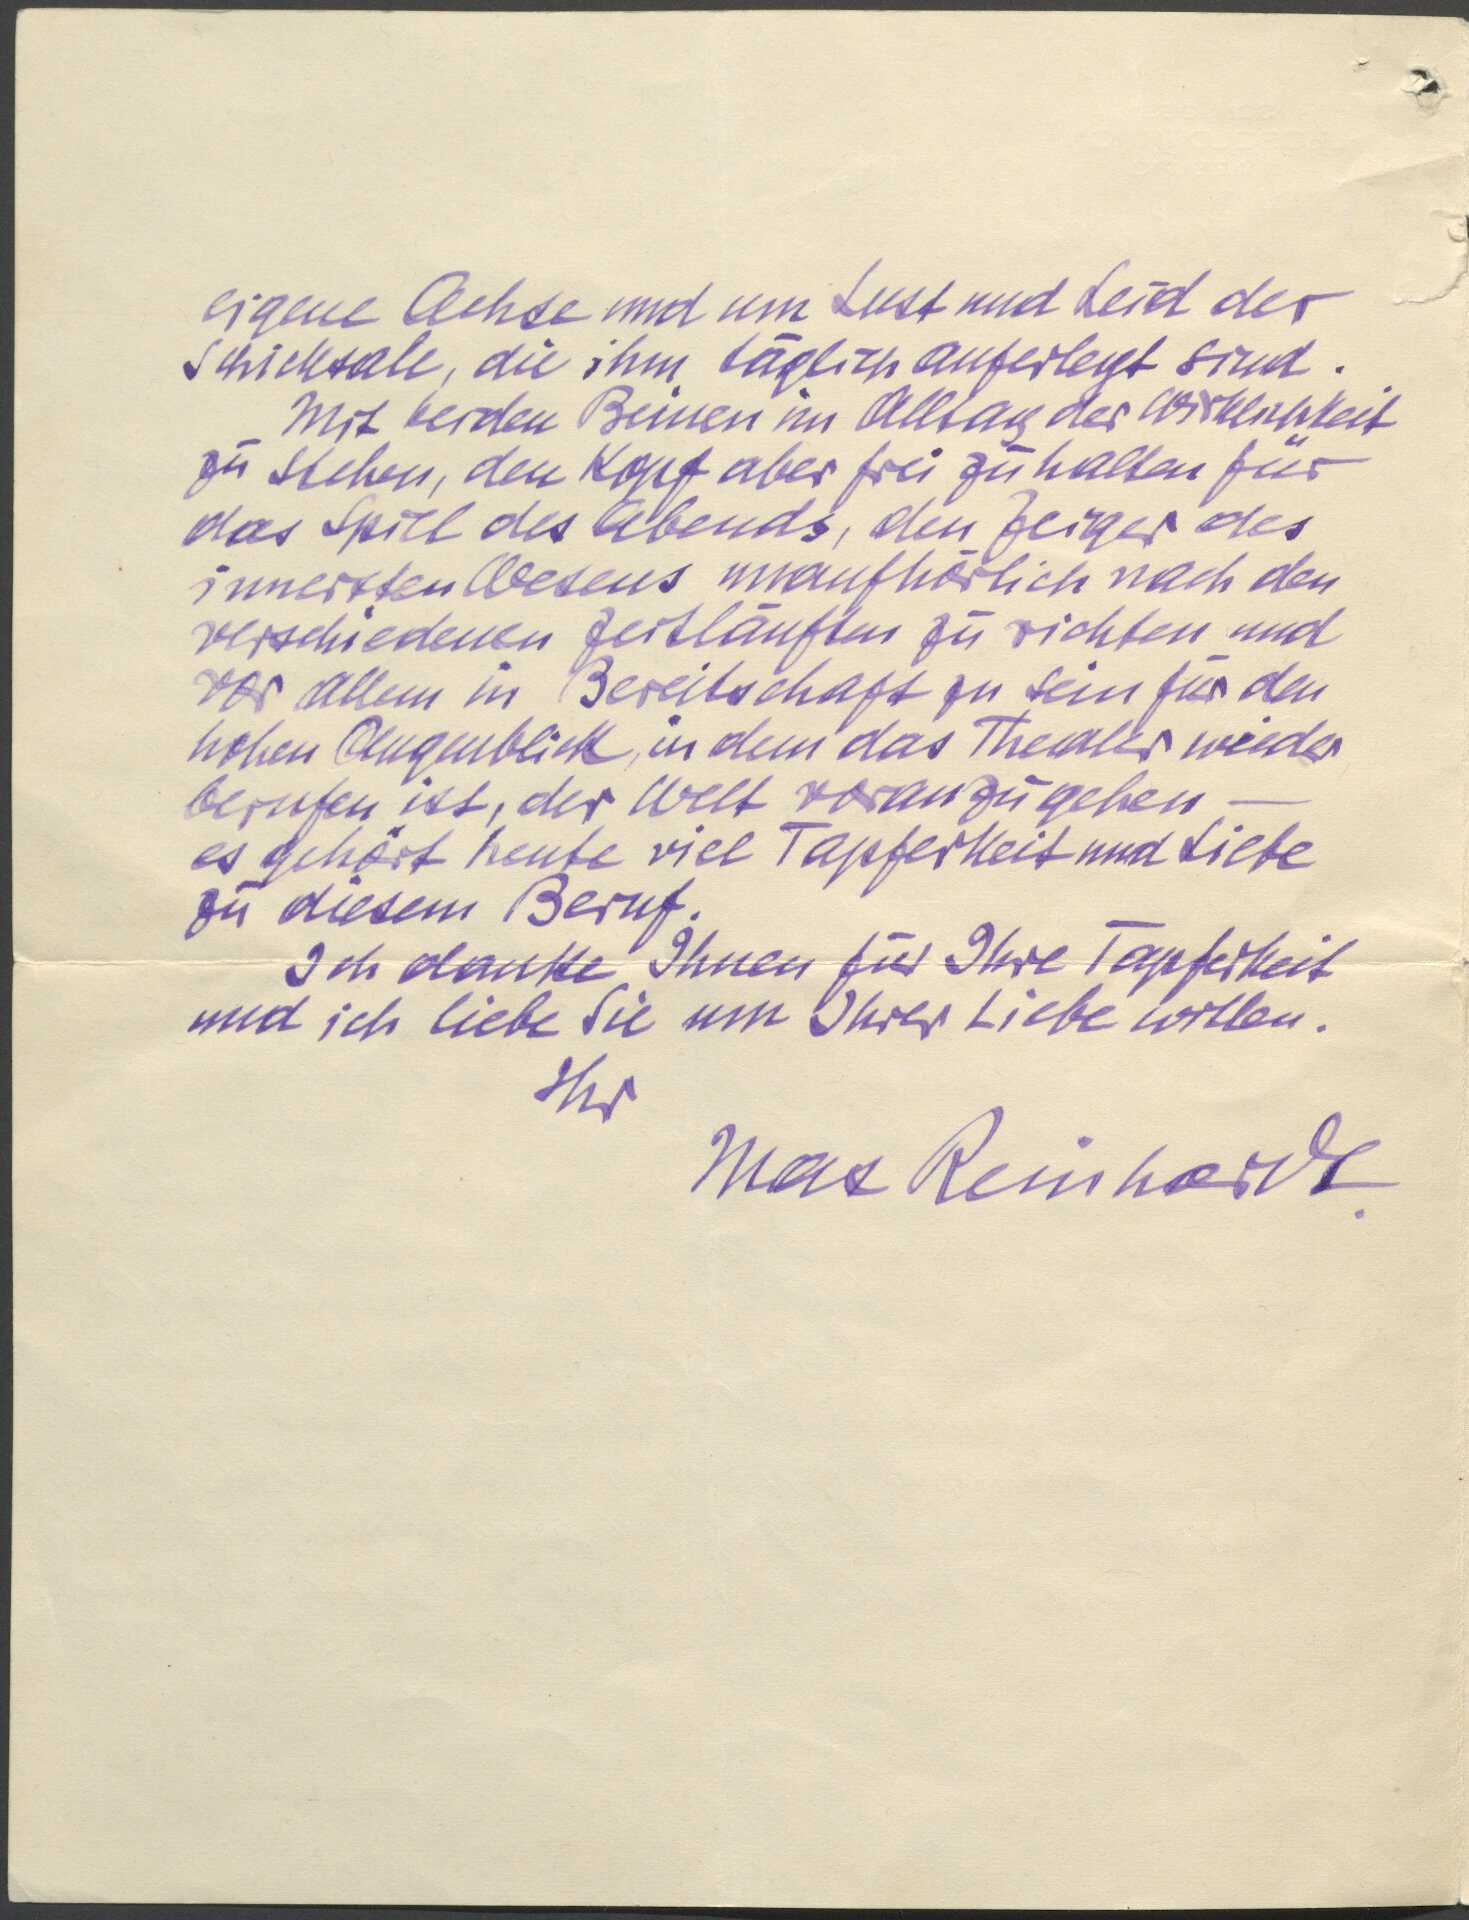 eigene Achse und um Lust und Leid der
Schicksale, die ihm täglich auferlegt sind.
Mit beiden Beinen im Alltag der Wirklichkeit
zu stehen, den Kopf aber frei zu halten für
das Spiel des Abends, den Zeiger des
innersten Wesens unaufhörlich nach den
verschiedenen Zeitläuften zu richten und
vor allem in Bereitschaft zu sein für den
hohen Augenblick, in dem das Theater wieder
berufen ist, der Welt voranzugehen —
es gehört heute viel Tapferkeit und Liebe
zu diesem Beruf.
Ich danke Ihnen für Ihre Tapferkeit
und ich liebe Sie um Ihrer Liebe willen.
Ihr
Max Reinhardt.